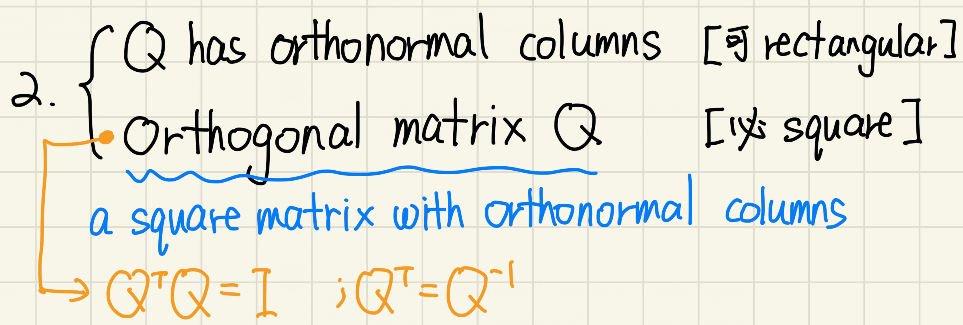 2. { Q has orthonormal columns [可 rectangular]
Orthogonal matrix Q [必 square]
a square matrix with orthonormal columns
→ QᵀQ = I ; Qᵀ = Q⁻¹